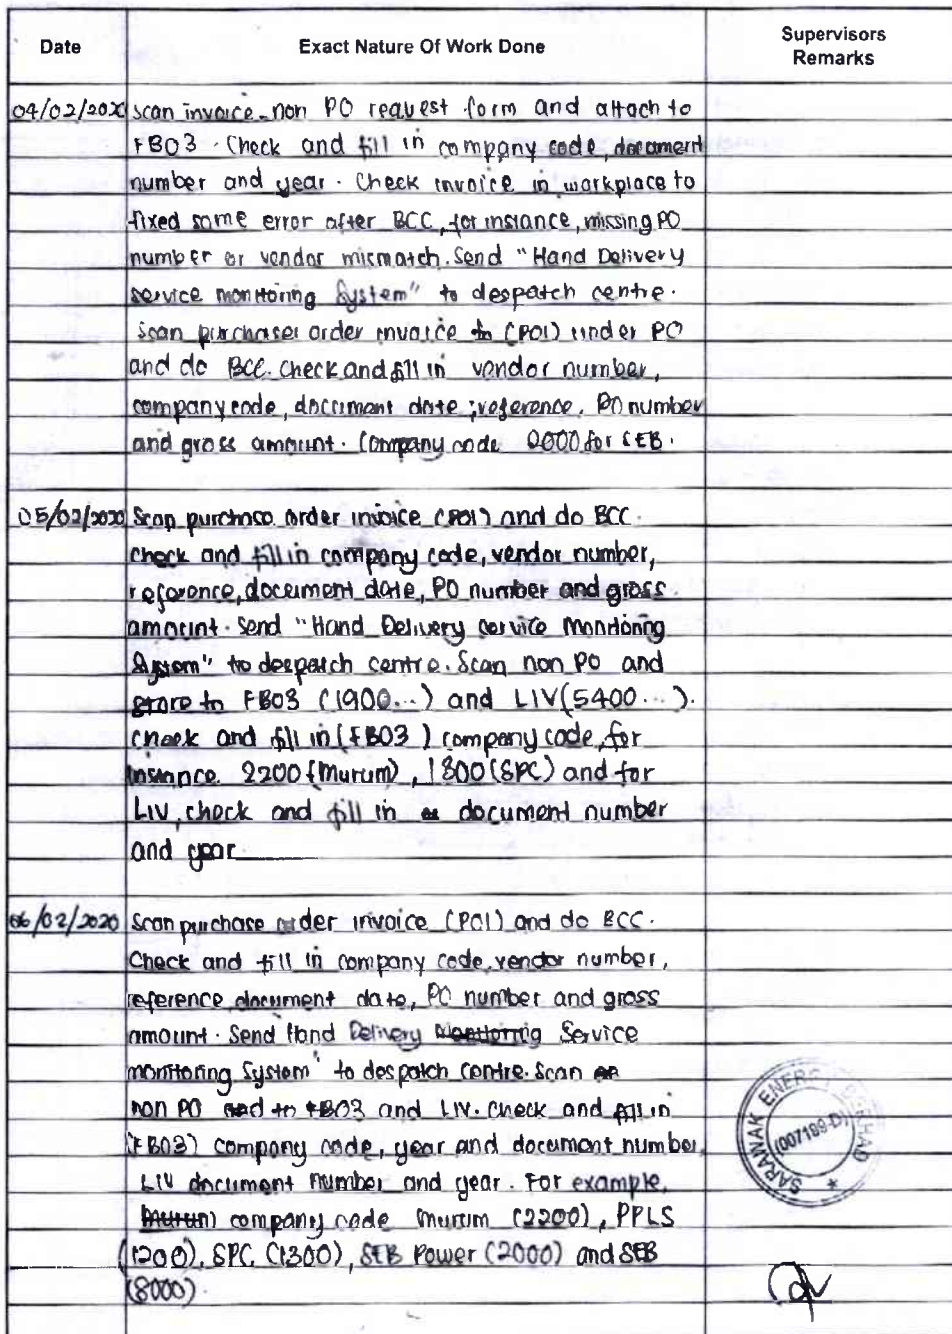 Date Exact Nature Of Work Done Supervisors Remarks
04/02/2020 Scan invoice non PO request form and attach to
FB03. Check and fill in company code, document
number and year. Check invoice in workplace to
fixed some error after BCC, for instance, missing PO
number or vendor mismatch. Send "Hand Delivery
service monitoring System" to despatch centre.
Scan purchase order invoice (POI) under PO
and do BCC. Check and fill in vendor number,
company code, document date, reference, PO number
and gross amount. Company code for SEB.
05/02/2020 Scan purchase order invoice (POI) and do BCC.
check and fill in company code, vendor number,
reference, document date, PO number and gross
amount. Send "Hand Delivery service Monitoring
System" to despatch centre. Scan non PO and
store to FB03 (1900...) and LIV (5400...).
check and fill in (FB03) company code, for
instance 2200 (Murum), 1800 (SPC) and for
LIV, check and fill in document number
and year
06/02/2020 Scan purchase order invoice (POI) and do BCC.
Check and fill in company code, vendor number,
reference document date, PO number and gross
amount. Send Hand Delivery Service
monitoring System" to despatch centre. Scan
non PO to FB03 and LIV. Check and fill in
(FB03) company code, year and document number,
LIV document number and year. For example,
company code Murum (2200), PPLS
(1200), SPC (1300), SEB Power (2000) and SEB
(8000)
SARAWAK ENERGY BERHAD
(007199-D)